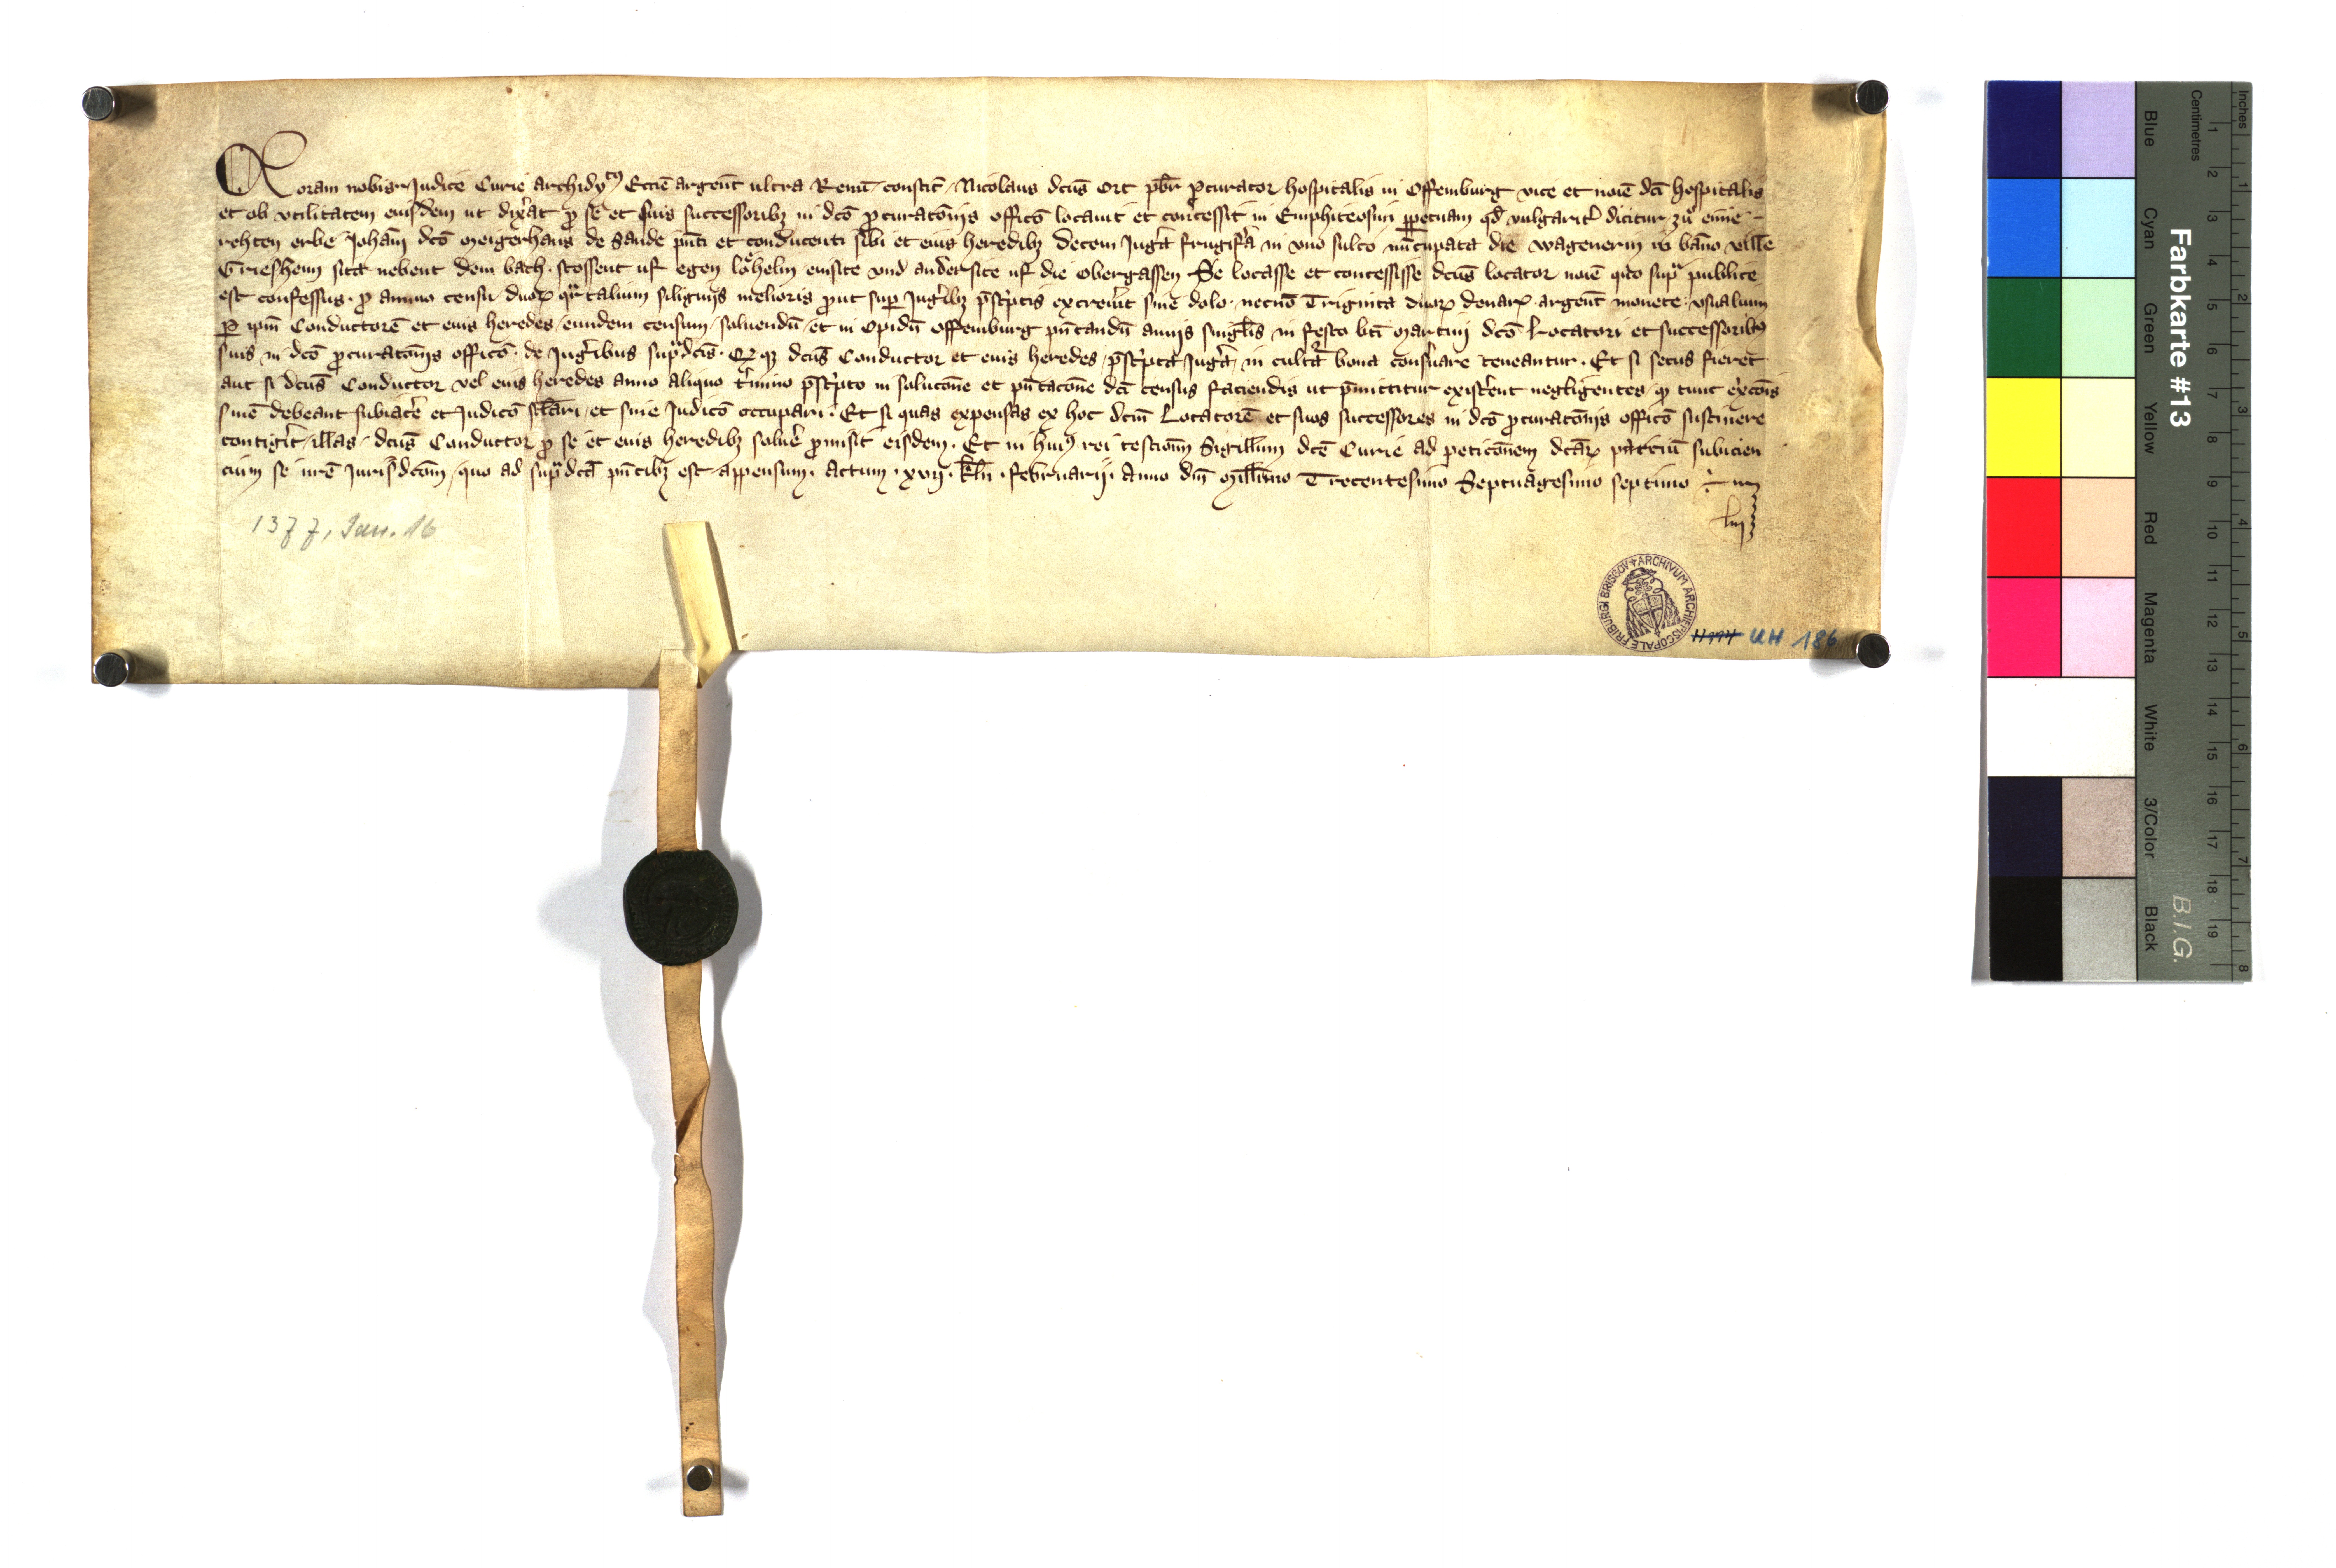 Coram nobis Judice Curie archidyᵗⁱ Eccīe argent̄ ultra Renū constit̄ Nicolaus dcūs Ort pbr̄ ꝓcurator hospitalis in Offemburg vice et noīe dcī hospitalis
et ob vtilitatem eiusdem ut dix̄at ꝓ se et suis successoribꝫ in dcō ꝓcuratōnis officō locauit et concessit in Emphiteosim ꝑpetuam qd̄ vulgarit̄ dicitur zuͦ eime
rehten erbe Johān̄ dcō Meigerhans de Sande pn̄ti et conducenti sibi et eius heredibꝫ decem Juḡa frugif̄a in vno sulco nūcupata die wagenerin in bāno ville
Griesheim sita nebent dem bach stossent uf egen loͤhelin einsite vnd andersite uf die obergassen Se locasse et concessisse dcūs locator noīe quo supᵃ publice
est confessus ꝓ annuo censu duoꝝ qᵃrtalium siliginis melioris ꝓut suꝑ Juḡibꝫ p̄scⁱptis excreu̅it sine dolo necnō Triginta duoꝝ denarꝝ argent̄ monete vsualium
ꝑ ipm̄ Conductorē et eius heredes eundem censum soluendū et in Opidū Offemburg pn̄tandū annis singlīs in festo btī Martini dcō Locatori et successoribꝰ
suis in dcō ꝓcuratōnis officō de Juḡibus supᵃdcīs Qꝫ dcūs Conductor et eius heredes p̄scⁱpta Juḡa in cultᵃ bona conseruare teneantur Et si secus fieret
aut si dcūs Conductor vel eius heredes anno aliquo t̄mino p̄scⁱpto in solucōne et pn̄tacōne dcī census faciendis ut p̄mittitur exist̄ent negligentes qꝫ tunc excōīs
sn̄ie debeant subiac̄e et Judicō et sine Judicō occupari Et si quas expensas ex hoc dcm̄ Locatorē et suos successores in dcō ꝓcuratōnis officō sustinere
contiḡit illas dcūs Conductor ꝓ se et eius heredibꝫ solue̅ ꝓmisit eisdem Et in huiꝰ rei testiom̄ Sigillum dcē Curie ad peticōnem dcāꝝ subicien
cium se Jurisdcōm̄ quo ad supᵃdcā pn̄tibꝫ est appensum Actum xvij kln̄ februarij Anno dnī Millīmo Trecentesimo Septuagesimo septimo
1377, Jan. 16
ARCHIVUM ARCHIEPISCOPALE FRIBURGI BRISGOV
UH 186
Farbkarte #13
B.I.G.
Blue Cyan Green Yellow Red Magenta White 3/Color Black
Centimetres 1 2 3 4 5 6 7 8 9 10 11 12 13 14 15 16 17 18 19
Inches 1 2 3 4 5 6 7 8